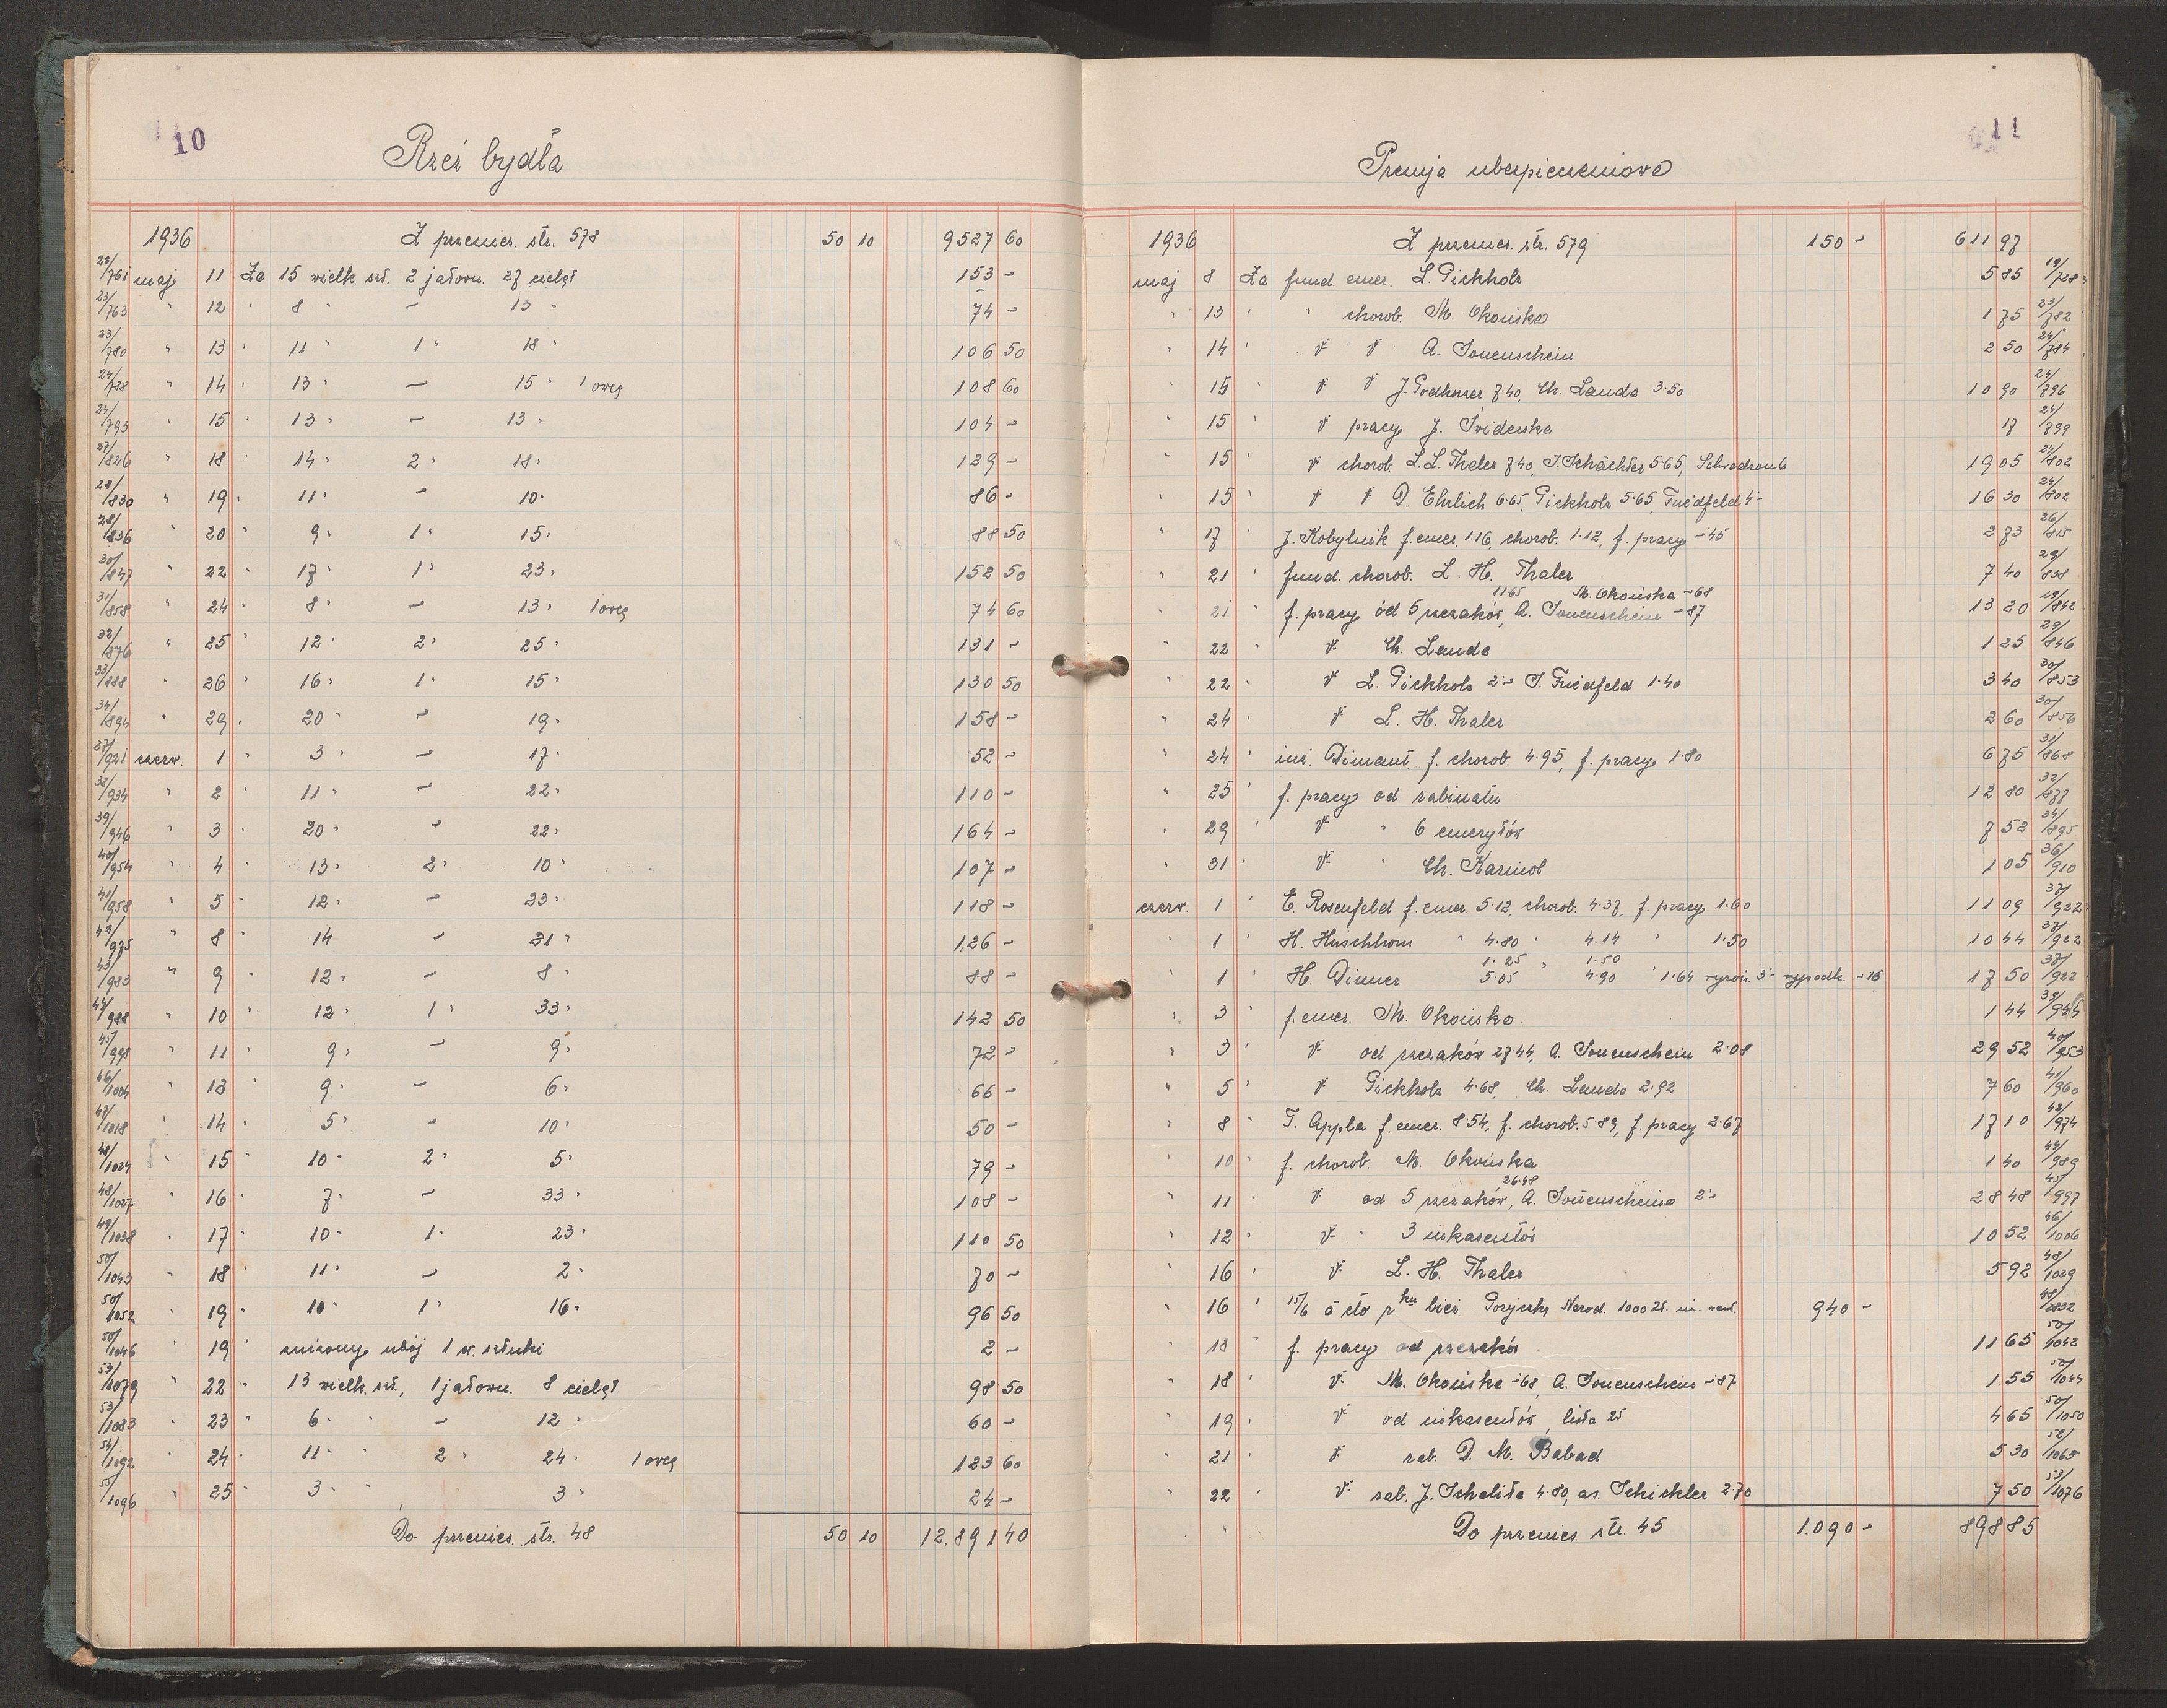 10
Rzeź bydła
1936 Z przenies. str. 578 50 10 9527 60
22/761 maj 11 Za 15 wielk. szt. 2 jałown. 27 cieląt 153 -
23/763 " 12 " 8 " - 13 " 74 -
23/780 " 13 " 11 " 1 " 18 " 106 50
24/788 " 14 " 13 " - 15 " 1 owcę 108 60
24/793 " 15 " 13 " - 13 " 104 -
27/826 " 18 " 14 " 2 " 18 " 129 -
28/830 " 19 " 11 " - 10 " 86 -
28/836 " 20 " 9 " 1 " 15 " 88 50
30/847 " 22 " 17 " 1 " 23 " 152 50
31/858 " 24 " 8 " - 13 " 1 owcę 74 60
32/876 " 25 " 12 " 2 " 25 " 131 -
33/888 " 26 " 16 " 1 " 15 " 130 50
34/894 " 29 " 20 " - 19 " 158 -
37/921 czerw. 1 " 3 " - 17 " 52 -
38/934 " 2 " 11 " - 22 " 110 -
39/946 " 3 " 20 " - 22 " 164 -
40/954 " 4 " 13 " 2 " 10 " 107 -
41/958 " 5 " 12 " - 23 " 118 -
42/975 " 8 " 14 - 21 " 126 -
43/983 " 9 " 12 " - 8 " 88 -
44/988 " 10 " 12 " 1 " 33 " 142 50
45/998 " 11 " 9 " - 9 " 72 -
46/1004 " 12 " 9 " - 6 " 66 -
47/1018 " 14 " 5 " - 10 " 50 -
48/1024 " 15 " 10 " 2 " 5 " 79 -
48/1027 " 16 " 7 " - 33 " 108 -
49/1038 " 17 " 10 " 1 " 23 " 110 50
50/1043 " 18 " 11 " - 2 " 70 -
50/1052 " 19 " 10 " 1 " 16 " 96 50
50/1046 " 19 " zniżony ubój 1 w. sztuki 2 -
53/1079 " 22 " 13 wielk. szt., 1 jałown. 8 cieląt 98 50
53/1083 " 23 " 6 " " - 12 " 60 -
54/1092 " 24 " 11 " " 2 " 24 " 1 owcę 123 60
55/1096 " 25 " 3 " " 3 " 24 -
Do przenies. str. 48 50 10 12.891 40
11
Premja ubezpieczeniowa
1936 Z przenies. str. 579 150 - 611 97
maj 8 Za fund. emer. L. Pickholz 5 85 19/728
" 13 " " chorob. M. Okońska 1 75 23/782
" 14 " " " A. Sonenschein 2 50 24/784
" 15 " " " J. Podhorzer 7·40, Ch. Landa 3·50 10 90 24/796
" 15 " " pracy J. Świderska 17 24/799
" 15 " chorob. L. L. Thaler 7·40, J. Schächter 5·65, Schwadron 6 19 05 24/802
" 15 " " " D. Ehrlich 6·65, Pickholz 5·65, Friedfeld 4 - 16 30 24/802
" 17 J. Kobylnik f. emer. 1·16, chorob. 1·12, f. pracy -45 2 73 26/815
" 21 " fund. chorob. L. H. Thaler 7 40 29/838
11·65 M. Okońska -68
" 21 " f. pracy od 5 rzezaków, A. Sonenschein -87 13 20 29/842
" 22 " " Ch. Landa 1 25 29/846
" 22 " " L. Pickholz 2 - S. Friedfeld 1·40 3 40 30/853
" 24 " " L. H. Thaler 2 60 30/856
" 24 " inż. Dimant f. chorob. 4·95, f. pracy 1·80 6 75 31/868
" 25 " f. pracy od rabinatu 12 80 32/877
" 29 " " " 6 emerytów 7 52 34/895
" 31 " " " Ch. Karmol 1 05 36/910
czerw. 1 " E. Rosenfeld f. emer. 5·12, chorob. 4·37, f. pracy 1·60 11 09 37/922
" 1 " H. Hirschhorn " 4·80 " 4·14 " 1·50 10 44 37/922
1·25 " 1·50
" 1 " H. Dimer 5·05 4·90 " 1·64 wyrów. 3 - wypadk. -16 17 50 37/922
" 3 " f. emer. M. Okońska 1 44 39/944
" 3 " " od rzezaków 27·44, A. Sonenschein 2·08 29 52 40/953
" 5 " " Pickholz 4·68, Ch. Landa 2·92 7 60 41/960
" 8 " T. Appla f. emer. 8·54, f. chorob. 5·89, f. pracy 2·67 17 10 42/974
" 10 " f. chorob. M. Okońska 1 40 44/989
26·48
" 11 " " od 5 rzezaków, A. Sonenscheina 2 - 28 48 45/997
" 12 " " " 3 inkasentów 10 52 46/1006
" 16 " " L. H. Thaler 5 92 48/1029
" 16 " 15/6 à cto bież. Pożyczki Narod. 1000 zł. 940 -
" 18 " f. pracy od rzezaków 11 65 50/1042
" 18 " M. Okońska -68, A. Sonenschein -87 1 55 50/1044
" 19 " " od inkasentów, lista 25 4 65 50/1050
" 21 " " rab. D. M. Babad 5 30 52/1065
" 22 " " rab. J. Schalita 4·80, as. Schickler 2·70 7 50 53/1076
Do przenies. str. 45 1.090 - 898 85